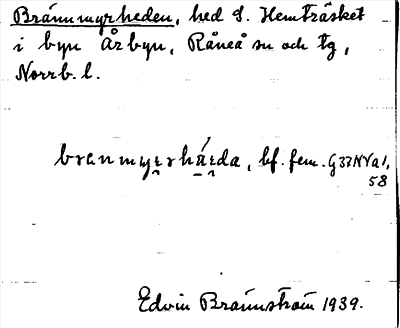 Brännmyrheden, hed S. Hemträsket
i byn Årbyn, Råneå sn och tg,
Norrb. l.
branmyrhä́da, bf. fem. G 37 NYa 1,
58
Edvin Brännström 1939.